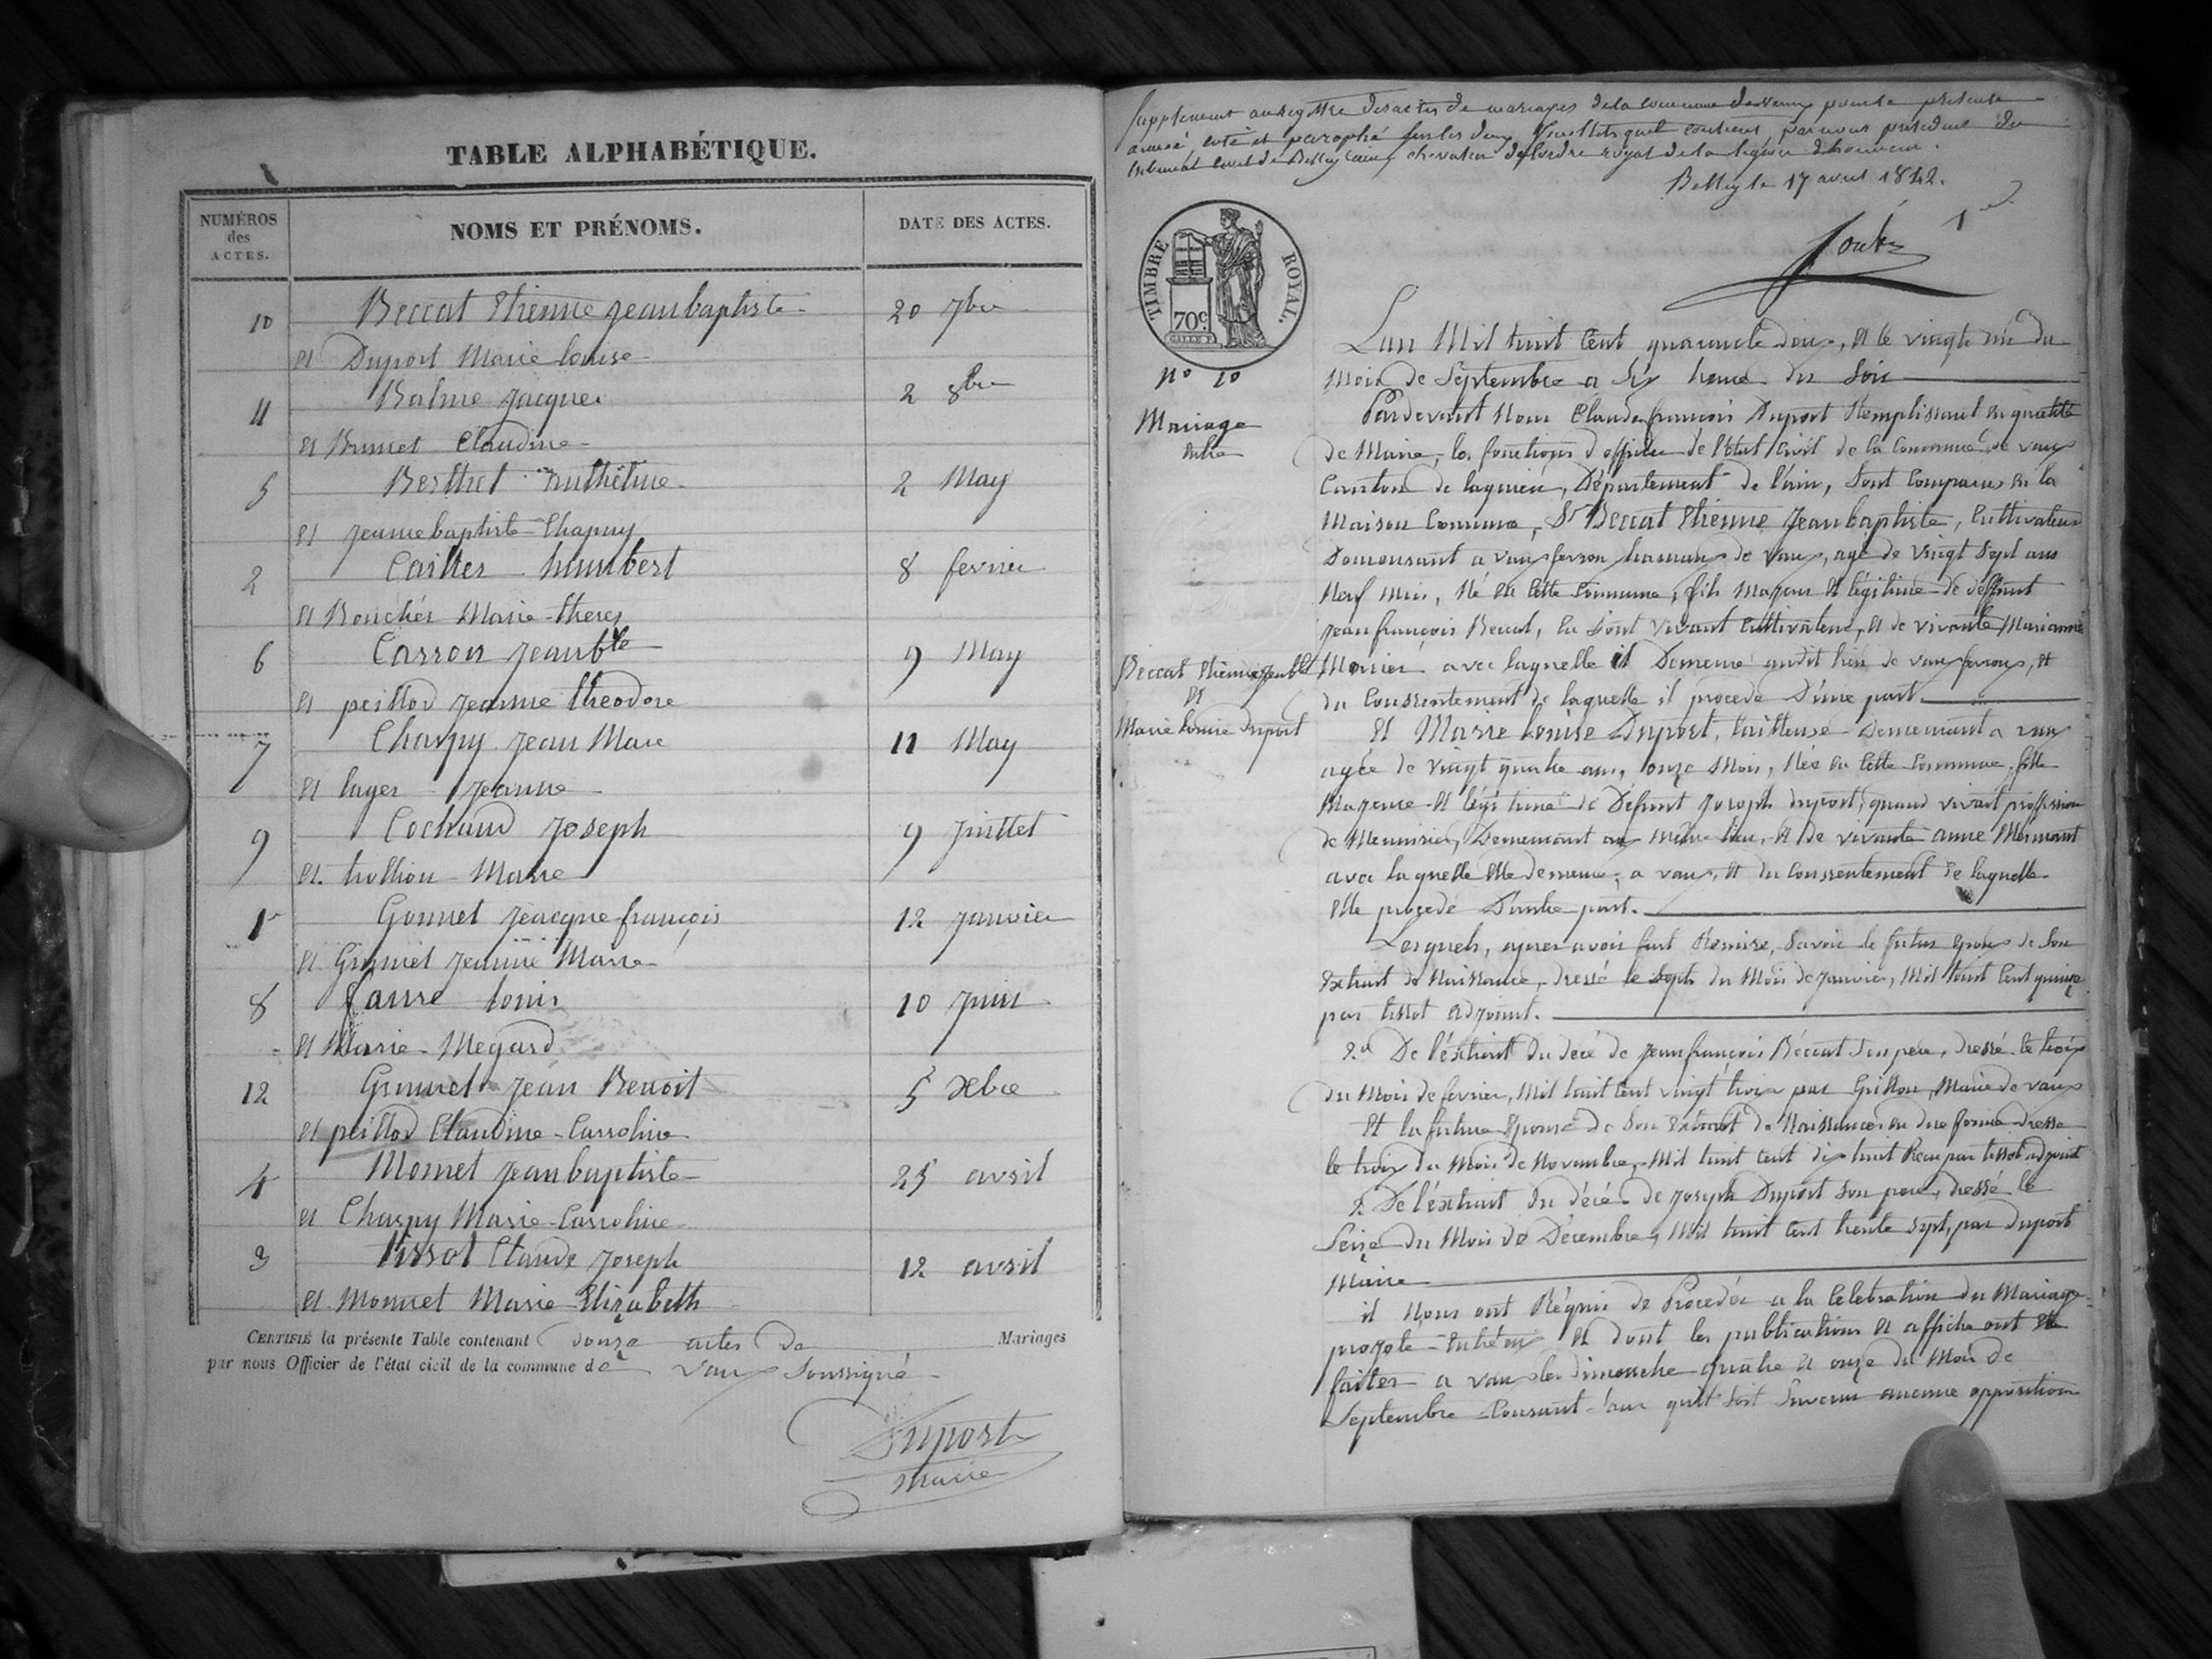 TABLE ALPHABÉTIQUE.
NUMÉROS des ACTES.
NOMS ET PRÉNOMS.
DATE DES ACTES.
10 Beccat Etienne Jean baptiste 20 7bre
et Duport Marie louise
11 Balme Jacques 2 8bre
et Brunet Claudine
5 Berthet Anthelme 2 May
et Jeanne baptiste Chapuy
2 Cailler humbert 8 fevrier
et Bouchér Marie
6 Carron Jean bte 9 May
et peillod Jeanne theodore
7 Charpy Jean Marc 11 May
et lager Jeanne
9 Cochaud Joseph 9 Juillet
et trollion Marie
1r Gonnet Jeacque françois 12 Janvier
et Jeanne Marie
8 faure louis 10 Juin
et Marie Megard
12 Jean Benoit 5 Xbre
et peillod Claudine Carroline
4 Monnet Jean baptiste 25 avril
et Charpy Marie Carroline
3 tissot Claude Joseph 12 avril
et Monnet Marie Elizabeth
CERTIFIÉ la présente Table contenant douze actes de Mariages
par nous Officier de l'état civil de la commune de vaux Soussigné
Duport
Maire
Supplement au registre des actes de mariages de la commune de vaux pour la presente
année, coté et paraphé sur les deux feuillets quil contient, par nous president du
tribunal civil de Belley, chevalier de l'ordre royal de la legion d'honneur.
Belley le 17 1842.
1er
TIMBRE ROYAL.
70c
N° 10
Mariage
entre
Beccat Etienne Jean bte
et
Marie louise Duport
Lan Mil huit Cent quarante deux, et le vingt du
Mois de Septembre a Six heures du Soir
Pardevant Nous Claude françois Duport Remplissant en qualité
de Maire, les fonctions d'officier de l'état Civil de la Commune de vaux
Canton de lagnieu, Département de l'ain, Sont Comparus en la
Maison Commune, Sr Beccat Etienne Jean baptiste, Cultivateur
Demeurant a vaux fevroux hameau de vaux, agé de vingt Sept ans
Neuf Mois, Né en Cette Commune, fils Majeur et légitime de déffunt
Jean françois Beccat, en Sont vivant Cultivateur, et de vivante Marianne
avec laquelle il Demeure audit lieu de vaux fevroux, et
du Conssentement de laquelle il procede D'une part
Et Marie louise Duport, tailleuse Demeurant a vaux
agée de vingt quatre ans, onze Mois, Née en Cette Commune, fille
Majeure et légitime de Défunt Joseph duport, quand vivant proffession
de Meunisier, Demeurant au même lieu, et de vivante anne Mermant
avec laquelle Elle demeure, a vaux, et du Conssentement de laquelle
Elle procede D'autre part.
Lesquels, apres avoir fait Remise, Savoir le futur Epoux de Son
Extrait de Naissance, dressé le Sept du Mois de Janvier, Mil huit Cent quinze
par tissot adjoint.
2.° De l'éxtrait du décé de Jean françois Béccat Son pere, dressé le trois
du Mois de fevrier, Mil huit Cent vingt trois par Maire de vaux
Et la future Epouse de Son Extrait de Naissance en due forme dressé
le trois du Mois de Novembre, Mil huit Cent dix huit Recu par tissot adjoint
2. De l'éxtrait du décé de Joseph Duport Son pere, dressé le
Seize du Mois de Décembre, Mil huit Cent trente Sept, par duport
Maire
il Nous ont Réquis de Procedér a la Celebration du Mariage
projeté entre eux et dont les publications et affiche ont été
faites a vaux les dimanche quatre et onze du Mois de
Septembre Courant, Sans quil Soit Survenu aucune opposition